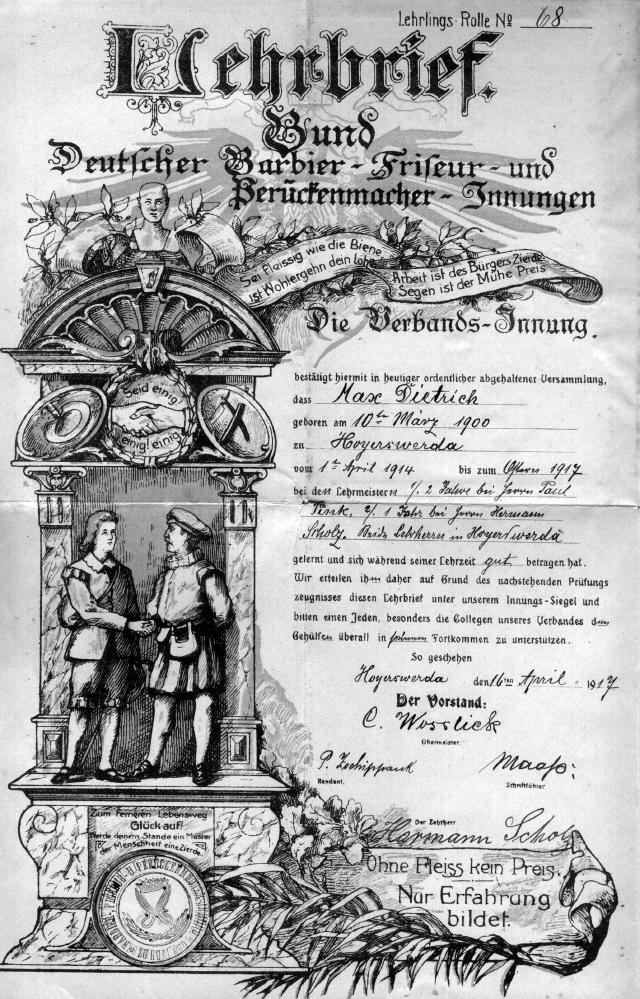 Lehrlings-Rolle Nº 68.
Lehrbrief.
Bund
Deutscher Barbier-Friseur- und
Perückenmacher-Innungen
Sei fleissig wie die Biene
ist Wohlergehn dein Lohn
Arbeit ist des Bürgers Zierde
Segen ist der Mühe Preis
Die Verbands-Innung.
bestätigt hiermit in heutiger ordentlicher abgehaltener Versammlung,
dass Max Dietrich
geboren am 10ten März 1900
zu Hoyerswerda
vom 1ten April 1914 bis zum Ostern 1917
bei den Lehrmeistern 1/. 2 Jahre bei Herrn Paul
2/. 1 Jahr bei Herrn Hermann
Scholz. Beide Lehrherrn in Hoyerswerda
gelernt und sich während seiner Lehrzeit gut betragen hat.
Wir erteilen ihm daher auf Grund des nachstehenden Prüfungs
zeugnisses diesen Lehrbrief unter unserem Innungs-Siegel und
bitten einen Jeden, besonders die Collegen unseres Verbandes den
Gehülfen überall in seinem Fortkommen zu unterstützen.
So geschehen
Hoyerswerda den 16ten April 1917
Der Vorstand:
C.
Obermeister.
P.
Rendant.
Maass.
Schriftführer
Der Lehrherr
Hermann Scholz
Seid einig!
einig! einig
Zum ferneren Lebensweg
Glück auf!
Werde deinem Stande ein Muster
der Menschheit eine Zierde.
Ohne Fleiss kein Preis.
Nur Erfahrung
bildet.